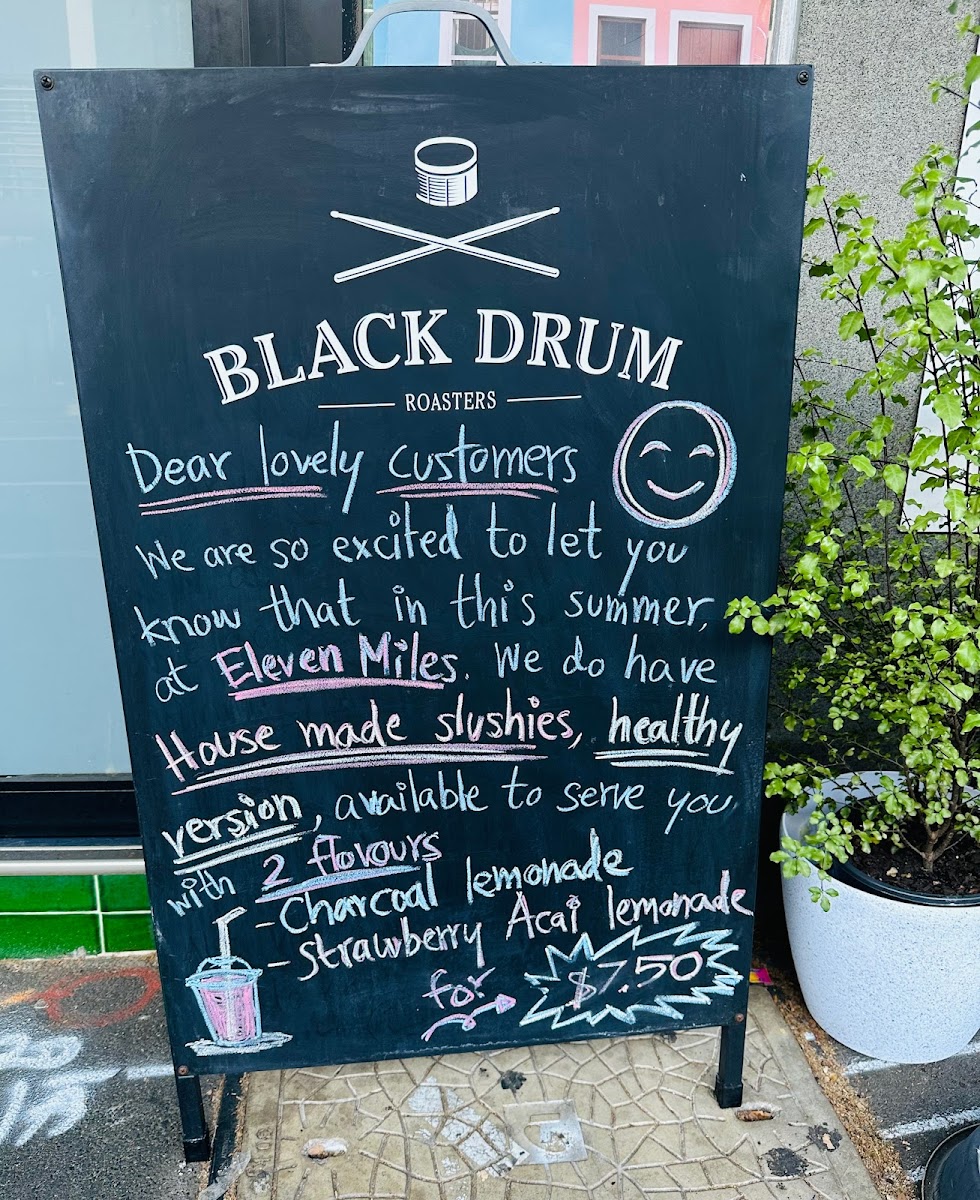 BLACK DRUM
ROASTERS
Dear lovely customers
We are so excited to let you
know that in this summer,
at Eleven Miles. We do have
House made slushies, healthy
version, available to serve you
with 2 flavours
- Charcoal lemonade
- Strawberry Acai lemonade
for $7.50